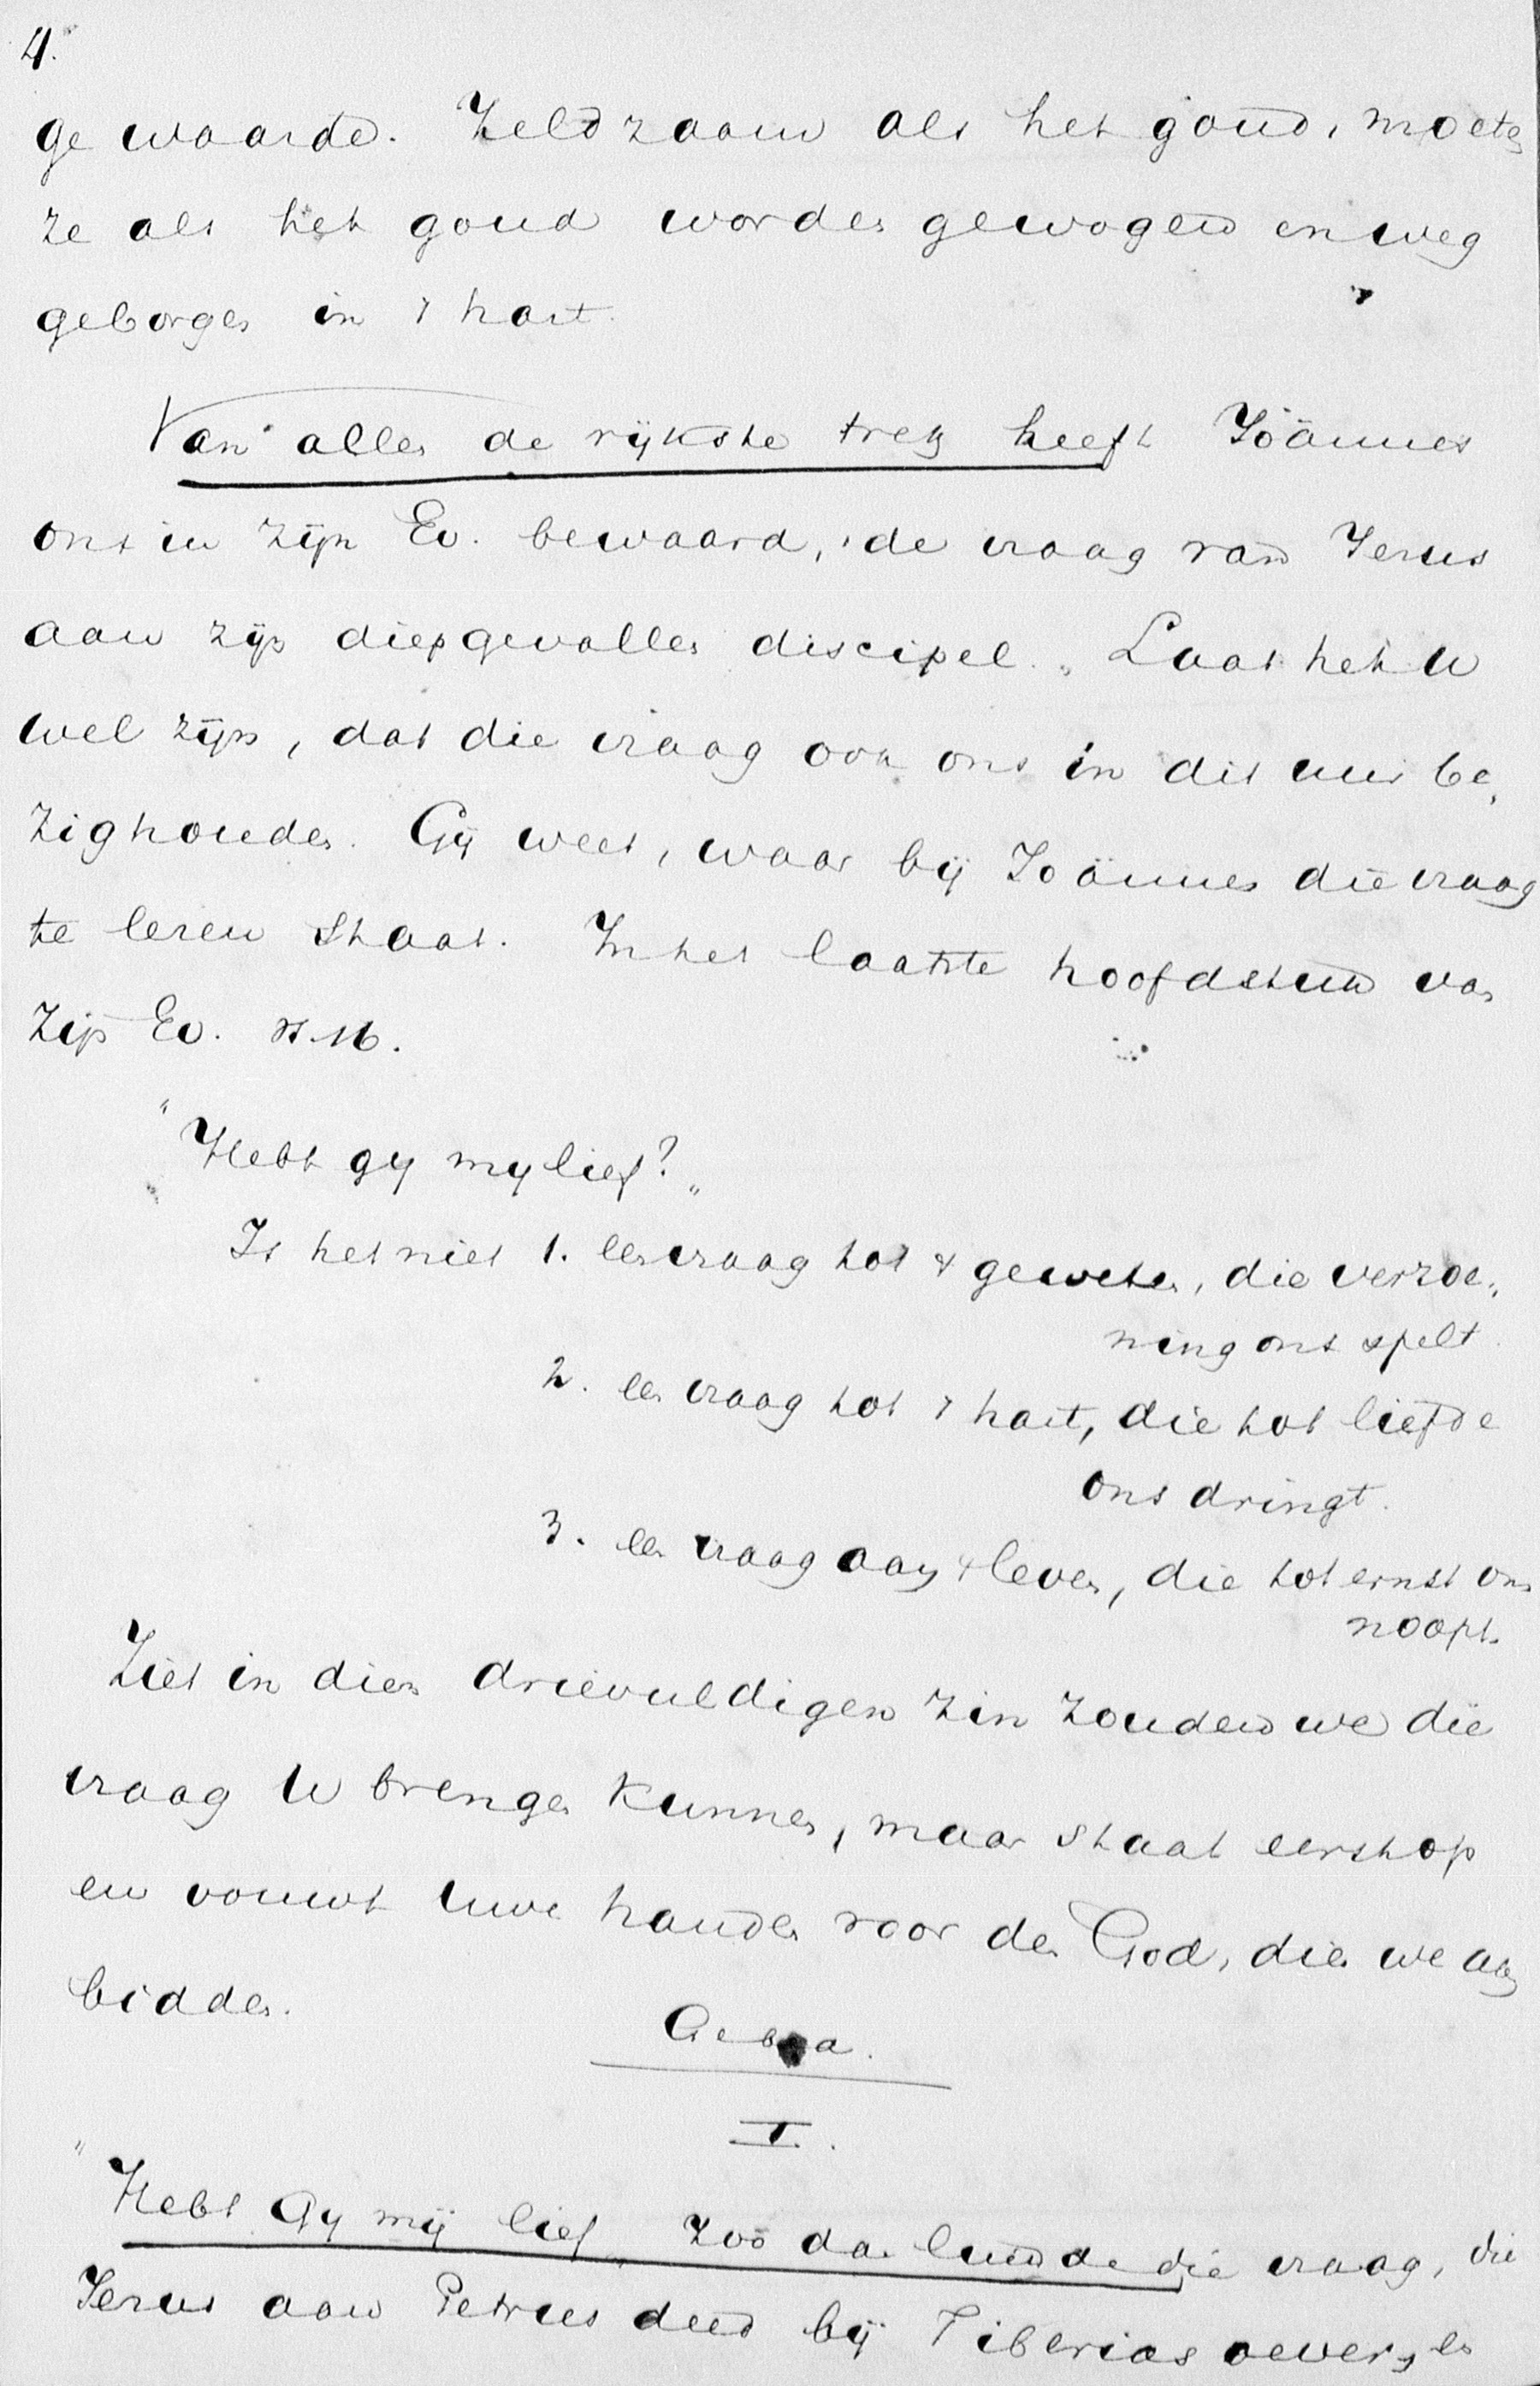 4.
ge waarde. Zeldzaam als het goud, moeten
ze als het goud worden gewogen en weg
geborgen in 't hart.
Van allen de rijkste trek heeft Joännes
ons in zijn Ev. bewaard, de vraag van Jezus
aan zijn diepgevallen discipel. „Laat het U
wel zijn, dat die vraag ook ons in dit uur be„
zighouden. Gij weet, waar bij Joännes die vraag
te lezen staat. In het laatste hoofdstuk van
zijn Ev. vs. 16.
"Hebt gy my lief?„
Is het niet 1. een vraag tot 't geweten, die verzoe„
ning ons spelt.
2. een vraag tot 't hart, die tot liefde
ons dringt.
3. een vraag aan 't leven, die tot ernst ons
noopt.
Ziet in dien drievuldigen zin zouden we die
vraag U brengen kunnen, maar staat eerst op
en vouwt uwe handen voor den God, dien we aan
bidden.
Gebed a.
I.
"Hebt Gy mij lief„ Zoo dan luidde die vraag, die
Jezus aan Petrus deed bij Tiberias oevers, en